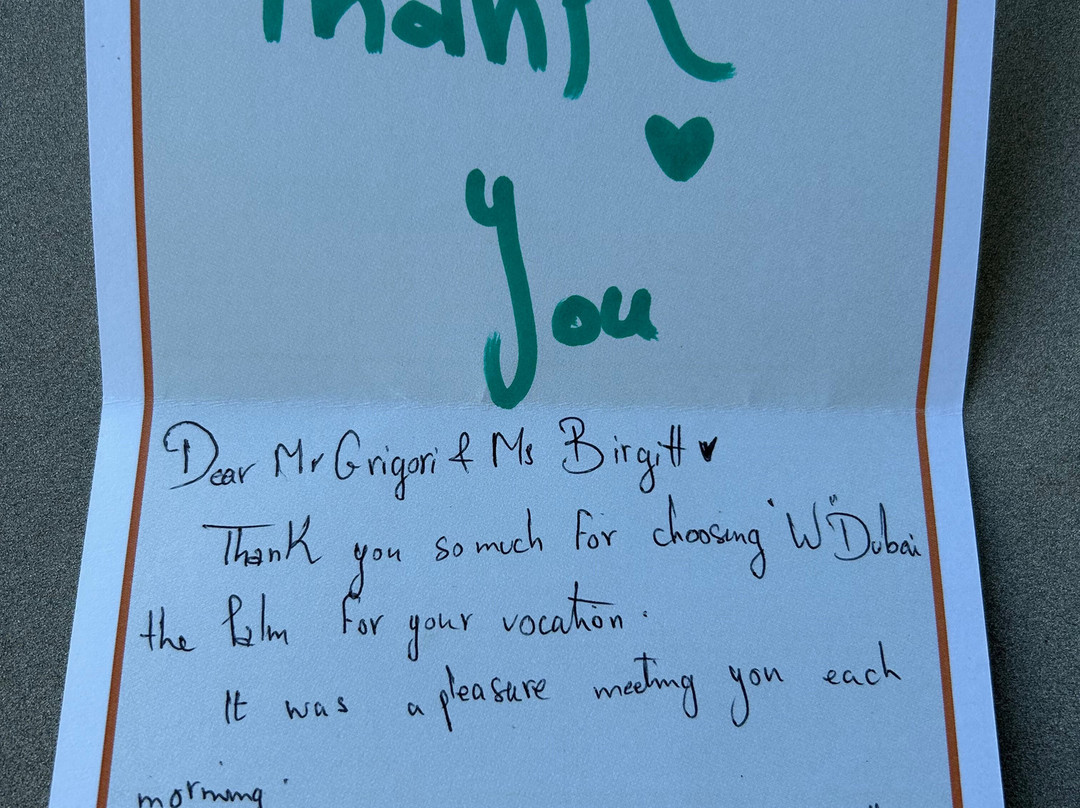 Thank
you
Dear Mr Grigori & Ms Birgitt ♥
Thank you so much for choosing "W" Dubai
the Palm for your vocation.
It was a pleasure meeting you each
morning.